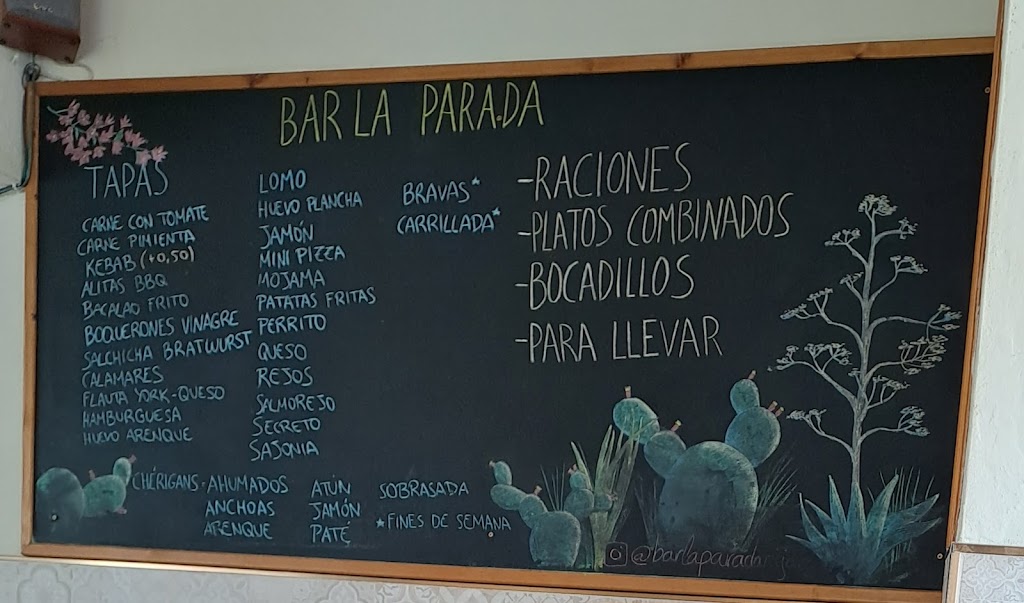 BAR LA PARADA
TAPAS
CARNE CON TOMATE
CARNE PIMIENTA
KEBAB (+0,50)
ALITAS BBQ
BACALAO FRITO
BOQUERONES VINAGRE
SALCHICHA BRATWURST
CALAMARES
FLAUTA YORK-QUESO
HAMBURGUESA
HUEVO ARENQUE
LOMO
HUEVO PLANCHA
JAMÓN
MINI PIZZA
MOJAMA
PATATAS FRITAS
PERRITO
QUESO
REJOS
SALMOREJO
SECRETO
SAJONIA
BRAVAS*
CARRILLADA*
-RACIONES
-PLATOS COMBINADOS
-BOCADILLOS
-PARA LLEVAR
CHÉRIGANS: AHUMADOS ATÚN SOBRASADA
ANCHOAS JAMÓN
ARENQUE PATÉ
*FINES DE SEMANA